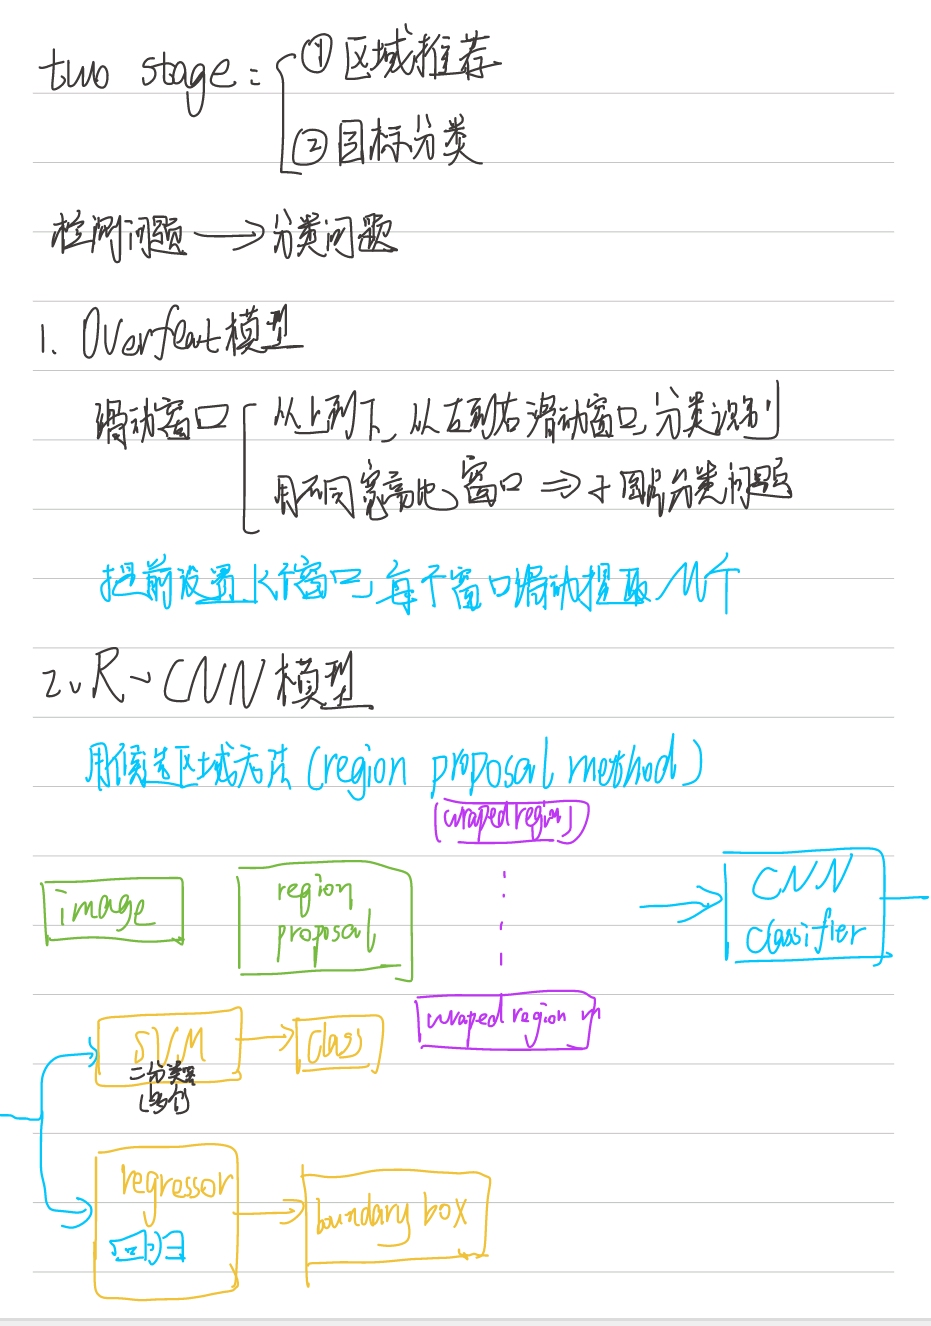 two stage: ① 区域推荐
② 目标分类
检测问题 → 分类问题
1. Overfeat模型
滑动窗口 从上到下, 从左到右滑动窗口, 分类识别
用不同宽高比, 窗口 ⇒ 图片分类问题
提前设置K个窗口, 每个窗口滑动提取M个
2、R-CNN 模型
用候选区域方法 (region proposal method)
wraped region 1
image
region
proposal
CNN
classifier
wraped region n
SVM
二分类器
(多个)
class
regressor
回归
boundary box